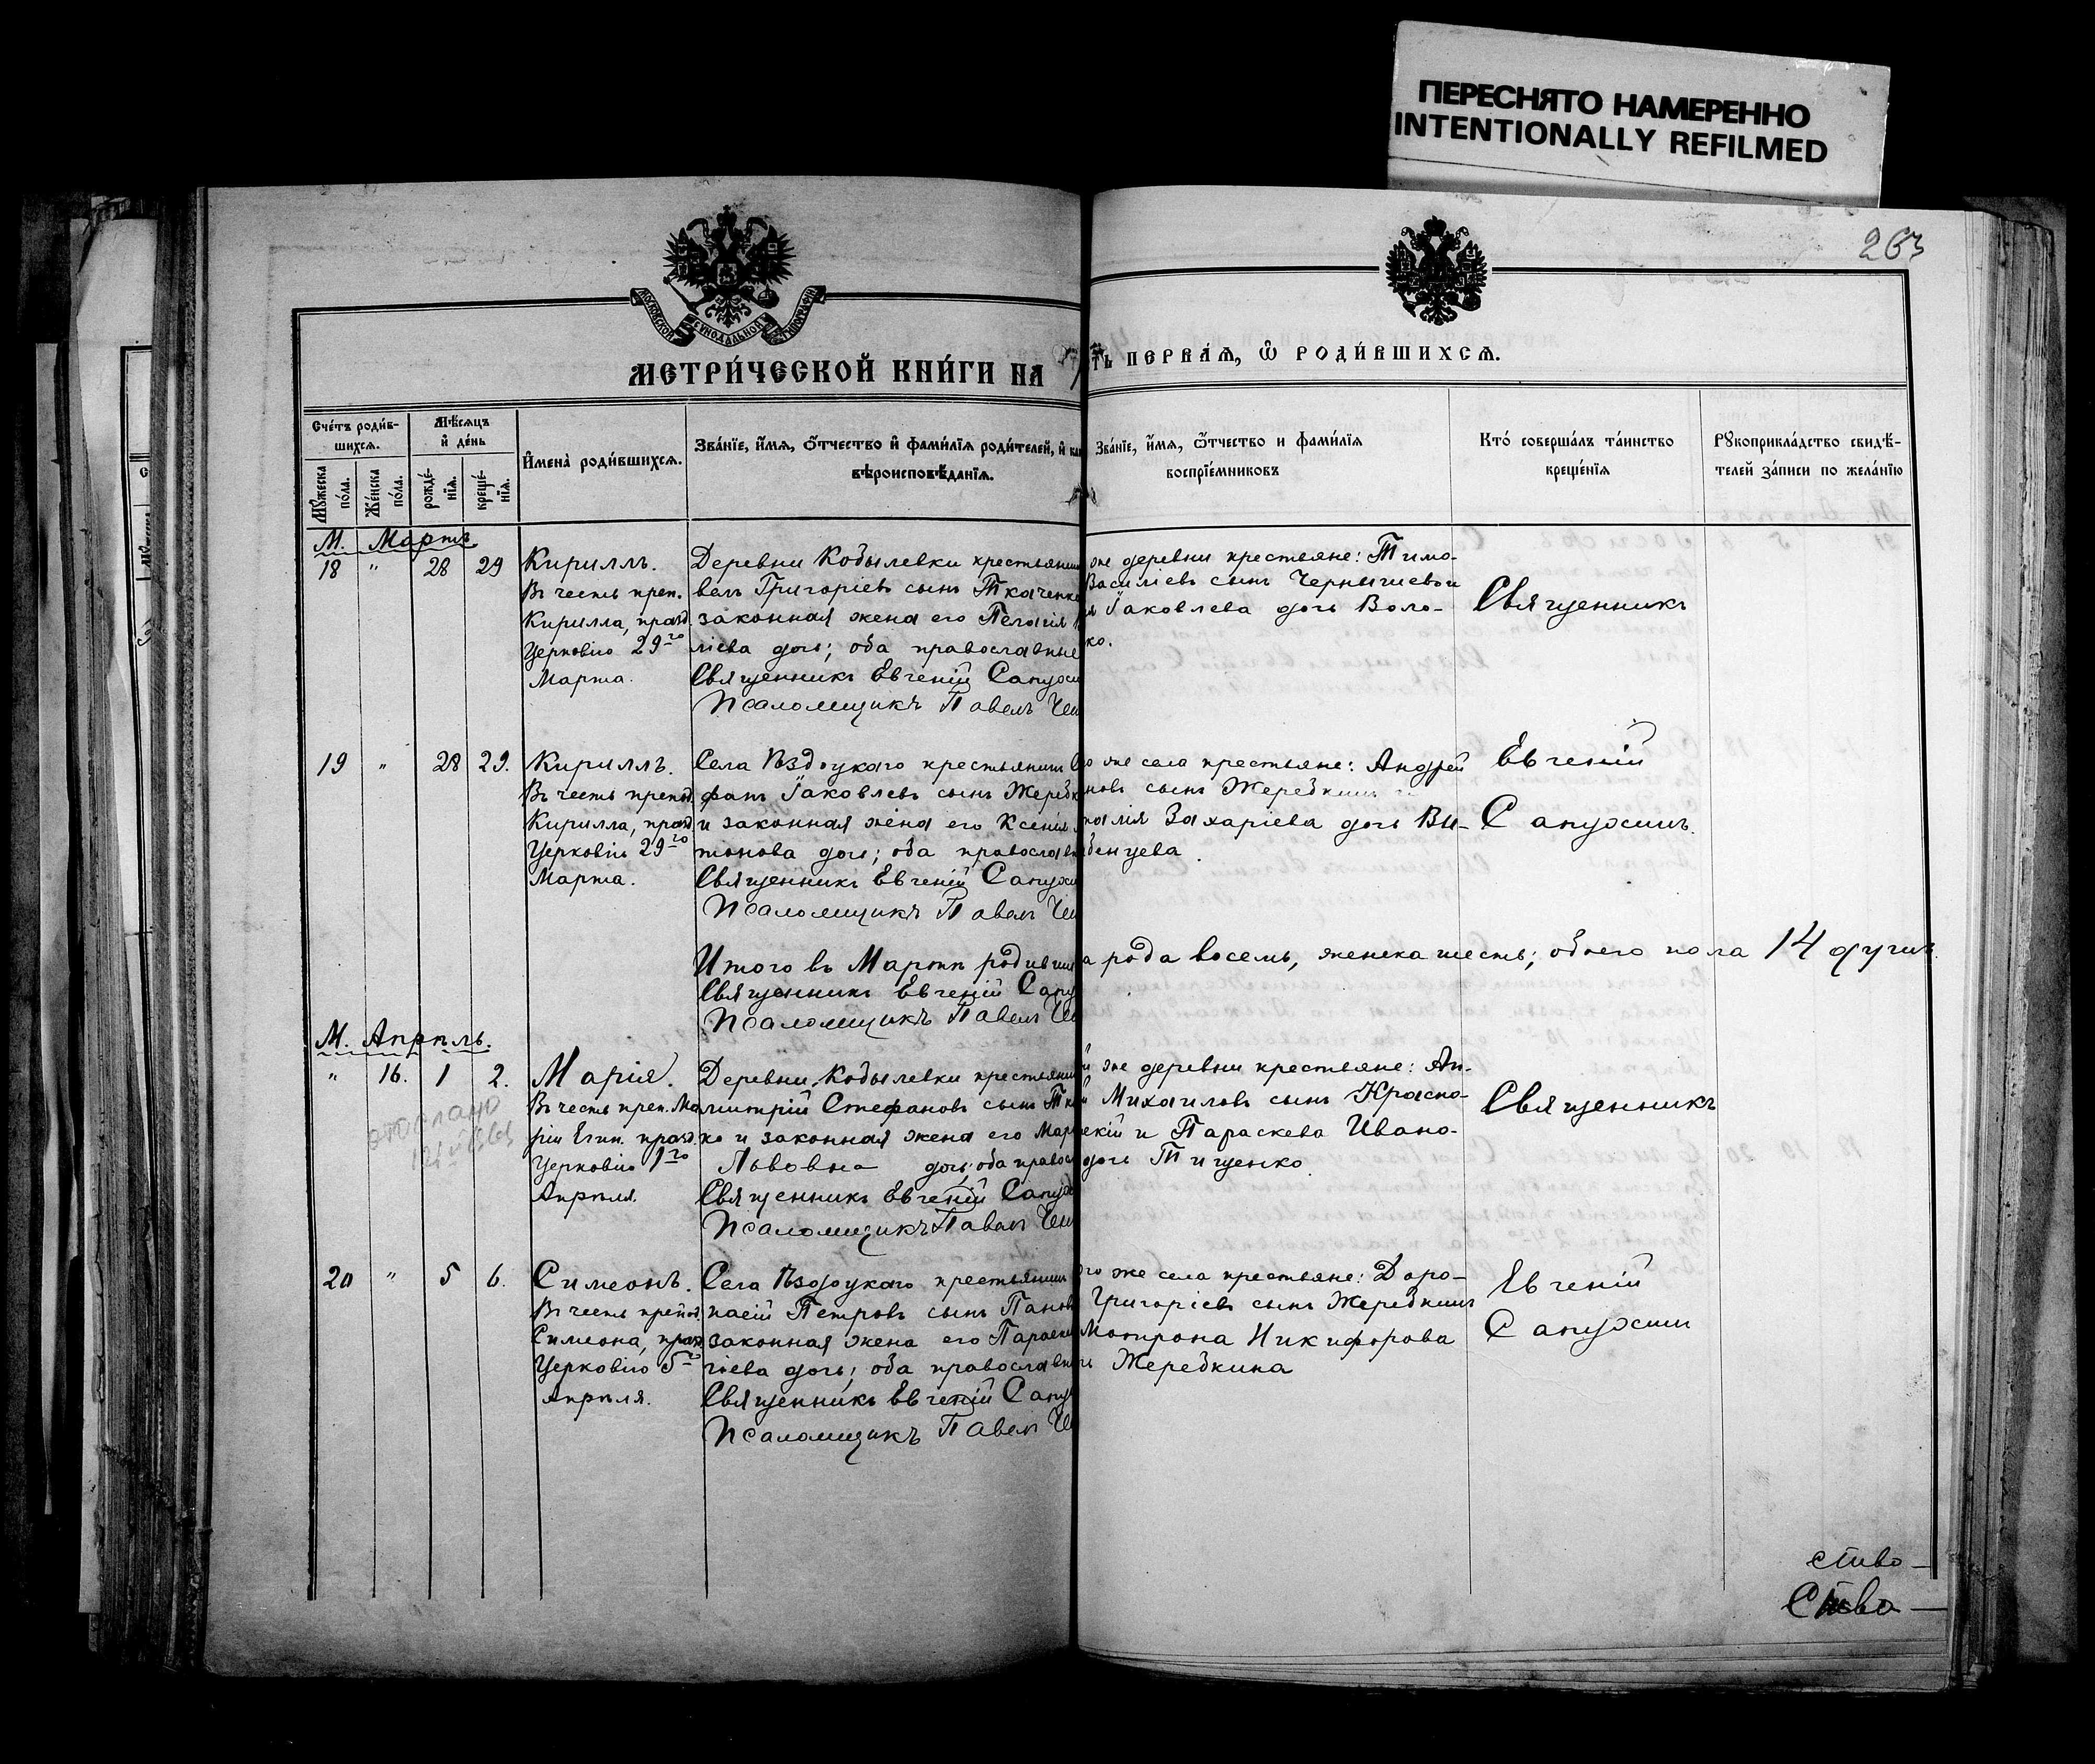 ПЕРЕСНЯТО НАМЕРЕННО
INTENTIONALLY REFILMED
263
МОСКОВСКОЙ СѴНОДАЛЬНОЙ ТИПОГРАФІИ
МЕТРИ́ЧЕСКОЙ КНИ́ГИ НА
ть ПЕРВА́Ѧ, Ѽ РОДИ́ВШИХСѦ.
Сче́тъ роди́в-
шихсѧ.
Мѣ́сѧцъ
и҆ де́нь
Мꙋ́жеска по́ла.
Же́нска по́ла.
рожде́-
нїѧ.
креще́-
нїѧ.
И҆мена̀ роди́вшихсѧ.
Зва́нїе, и҆́мѧ, ѻ҆́тчество и҆ фами́лїѧ роди́телей, и҆ ка
вѣроисповѣ́данїѧ.
Зва́нїе, и҆́мѧ, ѻ҆́тчество и фами́лїѧ
воспрїе́мниковъ
Кто́ соверша́лъ та́инство
креще́нїѧ
Рꙋкоприкла́дство свидѣ́-
телей за́писи по жела́нїю
М. Мартъ
18 " 28 29
Кириллъ.
Въ честь преп.
Кирилла, празд.
Церковію 29го
Марта.
Деревни Кобылевки крестьянин
велъ Григоріевъ сынъ Ткаченк
законная жена его Пелагія
ліева дочь; оба православные
Священникъ Евгеній Сапухи
Псаломщикъ Павелъ
же деревни крестьяне: Тимо-
Васильевъ сынъ
Іаковлева дочь Воло-
ко.
Священникъ
19 " 28 29.
Кириллъ.
Въ честь препод.
Кирилла, празд
Церковію 29го
Марта.
Села крестьянинъ
фанъ Іаковлевъ сынъ Жереб
и законная жена его Ксенія
тонова дочь; оба православн
Священникъ Евгеній Сапухи
Псаломщикъ Павелъ
о же села крестьяне: Андрей
новъ сынъ Жеребкинъ и
талія Захаріева дочь Вы-
бенцева.
Евгеній
Сапухинъ.
Итого въ Мартѣ родивши
а рода восемь, женска шесть; обоего пола 14 душъ.
Священникъ Евгеній Сапу
Псаломщикъ Павелъ
М. Апрѣль.
" 16. 1 2.
Марія.
Въ честь преп. Ма
ріи Егип. празд.
Церковію 1го
Апрѣля.
Деревни Кобылевки крестьянин
митрій Стефановъ сынъ Тк
ко и законная жена его Мар
Львовна дочь; оба правос
Священникъ Евгеній Сапух
Псаломщикъ Павелъ
й же деревни крестьяне: Ан-
й Михаиловъ сынъ Красно-
скій и Параскева Ивано-
дочь Тищенко
Священникъ
20 " 5 6.
Симеонъ.
Въ честь препод.
Симеона, празд
Церковію 5го
Апрѣля.
Села крестьянин
паеій Петровъ сынъ Панов
законная жена его Параск
гіева дочь; оба православн
Священникъ Евгеній Сапу
Псаломщикъ Павелъ
го же села крестьяне: Доро-
Григоріевъ сынъ Жеребкинъ
Мотрона Никифорова
ь Жеребкина
Евгеній
Сапухинъ
ство-
Ство-